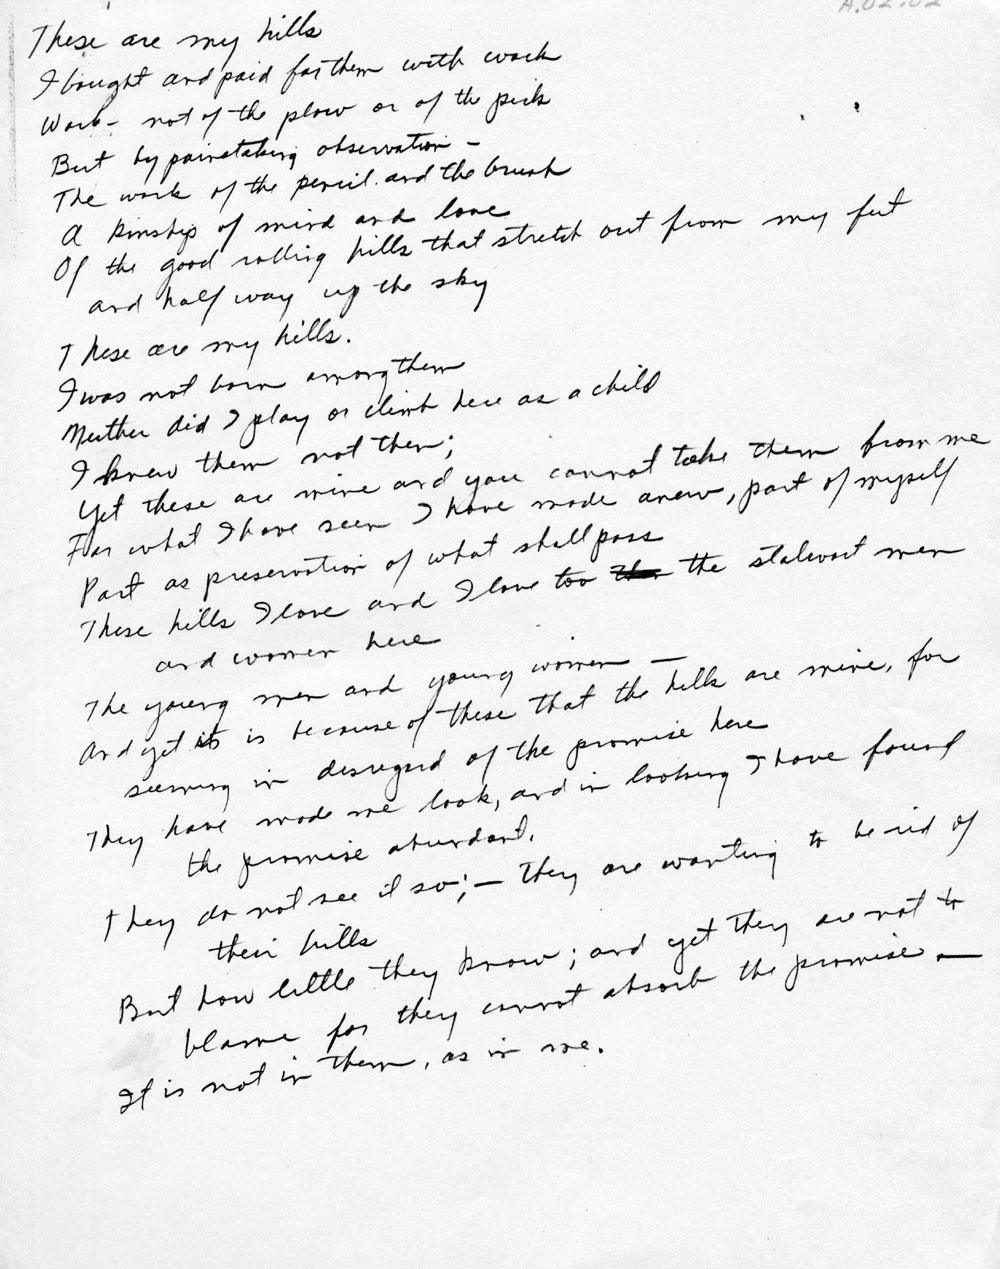 A.02.02
These are my hills
I bought and paid for them with work
Work - not of the plow or of the pick
But by painstaking observation -
The work of the pencil and the brush
A kinship of mind and love
Of the good rolling hills that stretch out from my feet
and half way up the sky
These are my hills.
I was not born among them
Neither did I play or climb here as a child
I knew them not then;
Yet these are mine and you cannot take them from me
For what I have seen I have made anew, part of myself
Part as preservation of what shall pass
These hills I love and I love too the stalwart men
and women here
The young men and young women —
And yet it is because of these that the hills are mine, for
seeming in disregard of the promise here
They have made me look, and in looking I have found
the promise abundant.
They do not see it so; — They are wanting to be rid of
their hills
But how little they know; and yet they are not to
blame for they cannot absorb the promise —
It is not in them, as in me.